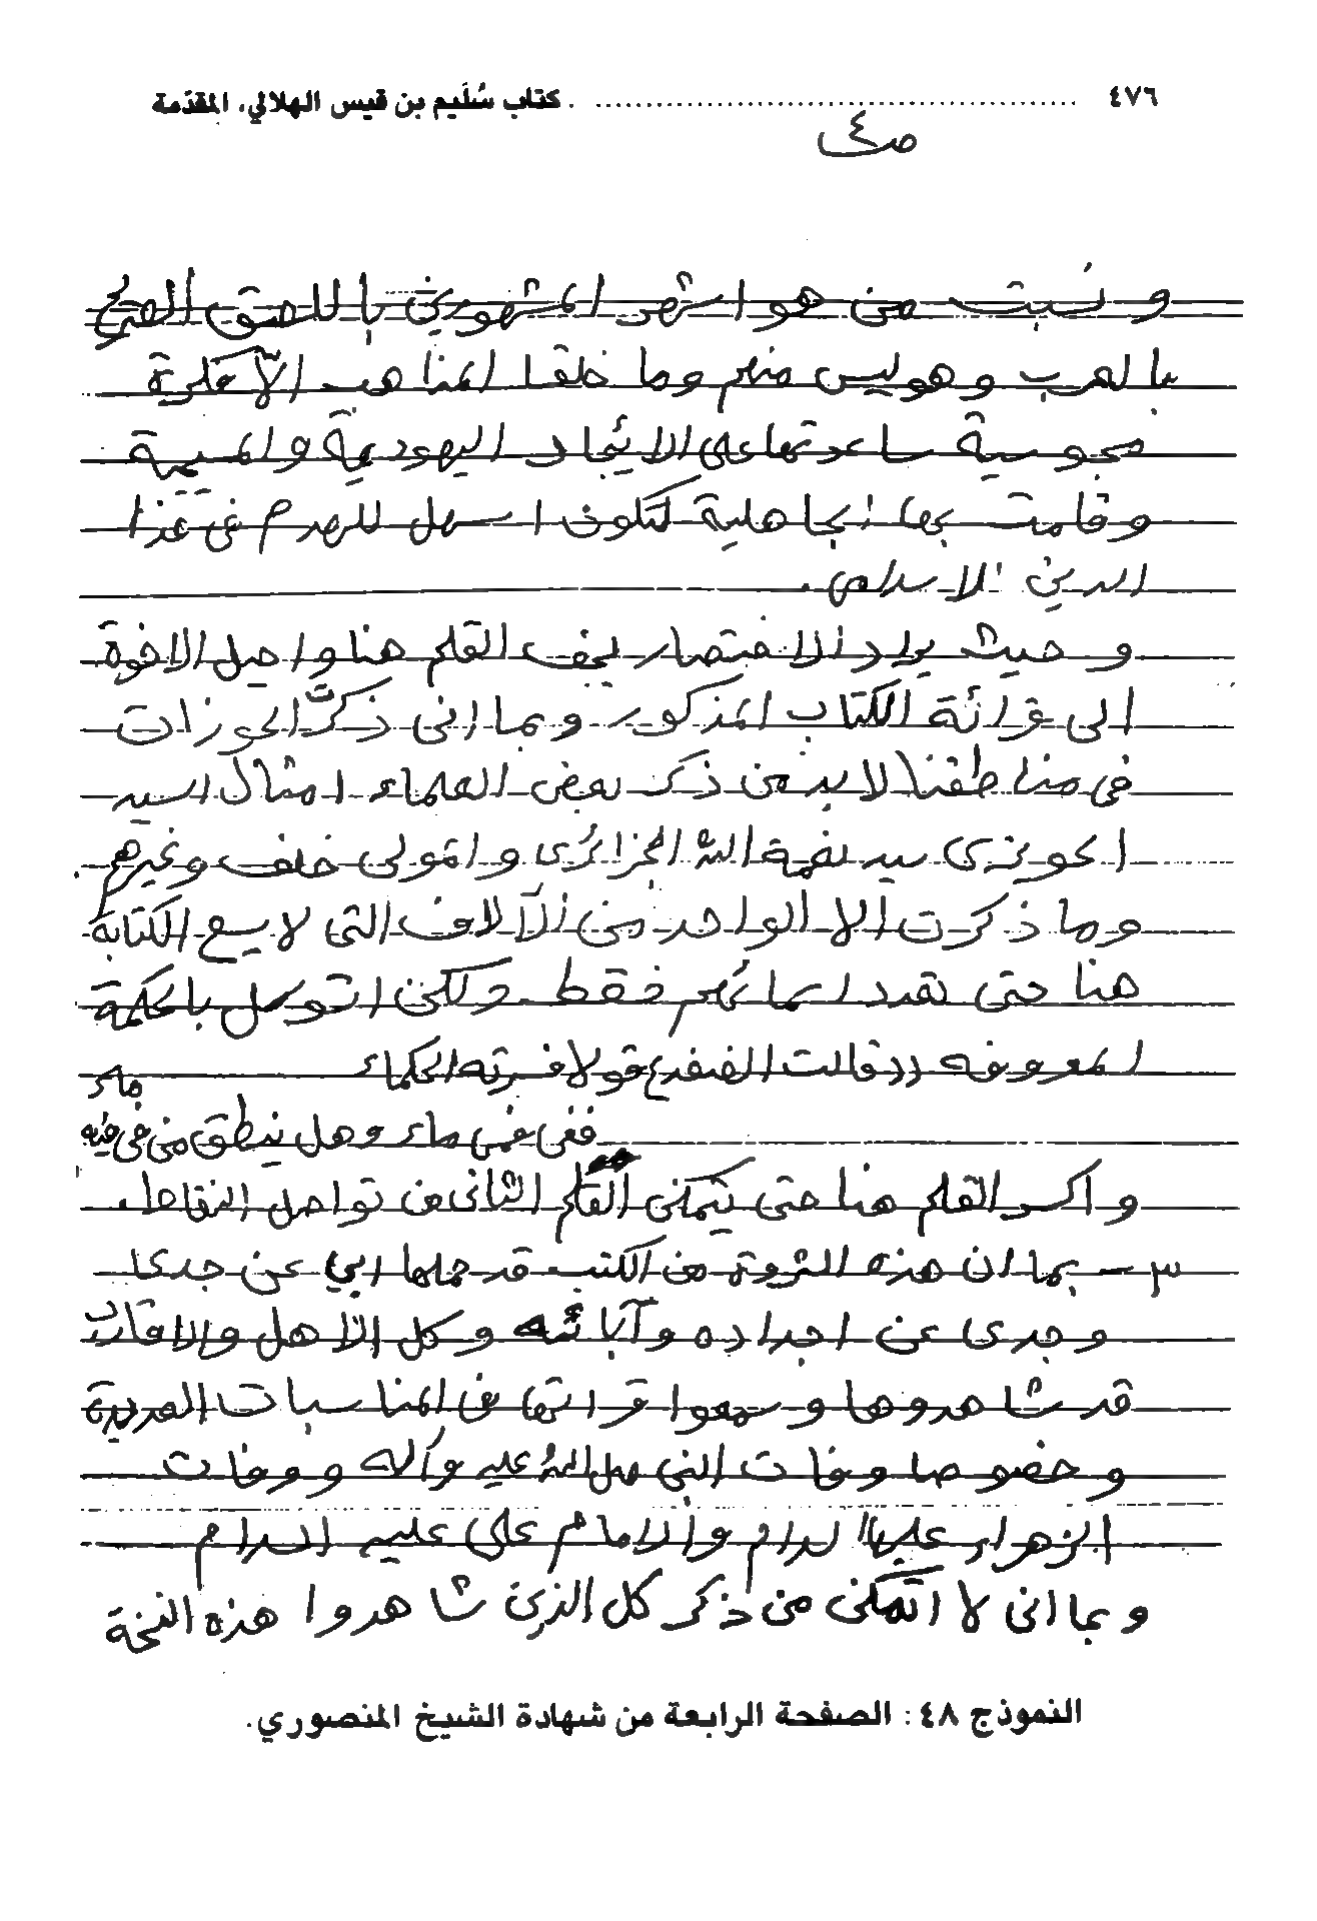 ٤٧٦ ........ كتاب سُلَيم بن قيس الهلالي، المقدّمة
ص٤
و نسبت من هو اشهر المشهورين باللصق الصريح
بالعرب و هو ليس منهم وما خلقا المذاهب الا
مجوسية ساعدتها على الايجاد اليهودية والمسيحية
وقامت بها الجاهلية لتكون اسهل للهدم في هذا
الدين الاسلامي.
و حيث يراد الاختصار يجف القلم هنا واحيل الاخوة
الى قرائة الكتاب المذكور و بما اني ذكرت الحوزات
في مناطقنا لابد من ذكر بعض العلماء امثال السيد
الحويزي سيد نعمة الله الجزائري و المولى خلف وغيرهم
وما ذكرت الا الواحد من الآلاف التي لا يسع الكتابة
هنا حتى تعدد اسمائهم فقط. ولكن اتوسل بالحكمة
المعروفه ((قالت الضفدع قولا فسرته الحكماء
ففي فمي ماء و هل ينطق من في فيه ماء
واكسر القلم هنا حتى يتمكن القلم الثاني من تواصل النقاط.
٣ – بما ان هذه الثروة من الكتب قد حملها ابي عن جدى
وجدى عن اجداده وآبائه و كل الاهل والاقارب
قد شاهدوها و سمعوا قرائتها في المناسبات العديدة
و خصوصا وفات النبي صلى الله عليه وآله و وفات
الزهراء عليها السلام والامام على عليه السلام
و بما اني لا اتمكن من ذكر كل الذين شاهدوا هذه النسخة
النموذج ٤٨: الصفحة الرابعة من شهادة الشيخ المنصوري.